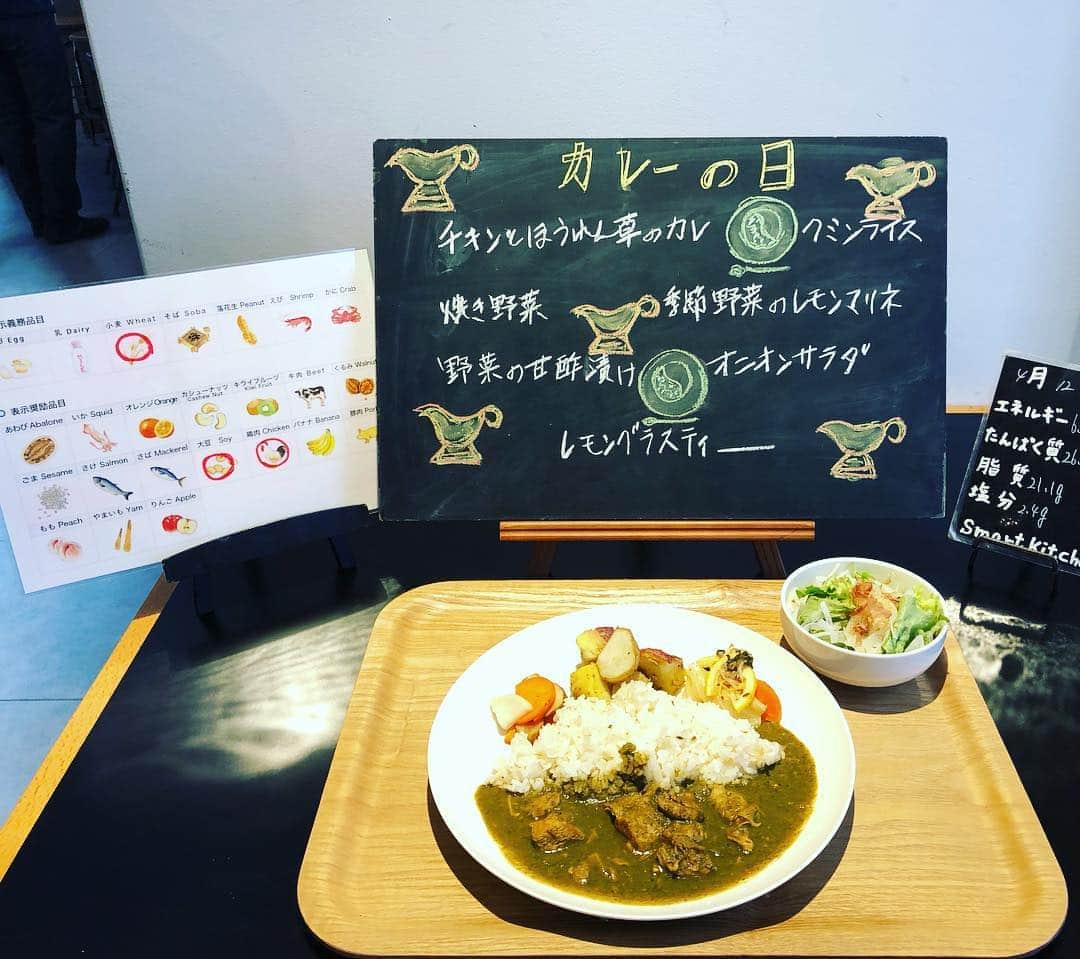 カレーの日
チキンとほうれん草のカレー クミンライス
焼き野菜 季節野菜のレモンマリネ
野菜の甘酢漬け オニオンサラダ
レモングラスティー
示義務品目
Egg 乳 Dairy 小麦 Wheat そば Soba 落花生 Peanut えび Shrimp かに Crab
表示奨励品目
あわび Abalone いか Squid オレンジ Orange カシューナッツ Cashew Nut キウイフルーツ Kiwi Fruit 牛肉 Beef くるみ Walnut
ごま Sesame さけ Salmon さば Mackerel 大豆 Soy 鶏肉 Chicken バナナ Banana 豚肉 Por
もも Peach やまいも Yam りんご Apple
4月 12
エネルギー 6
たんぱく質 26
脂質 21.1g
塩分 2.4g
Smart Kitch